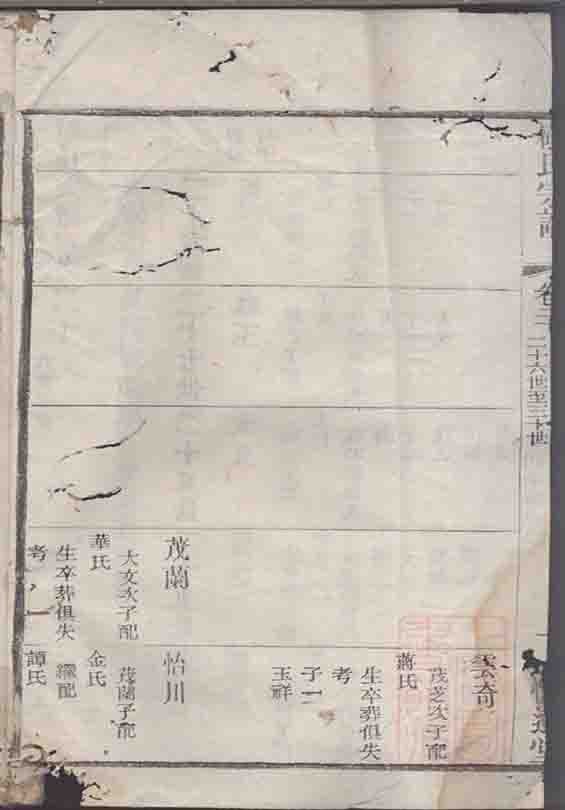 氏宗譜
卷
二十六世至三十世
雲奇
茂芝次子配
蔣氏
生卒葬俱失
考
子一
玉祥
茂蘭
大文次子配
華氏
生卒葬俱失
考
怡川
茂蘭子配
金氏
繼配
譚氏